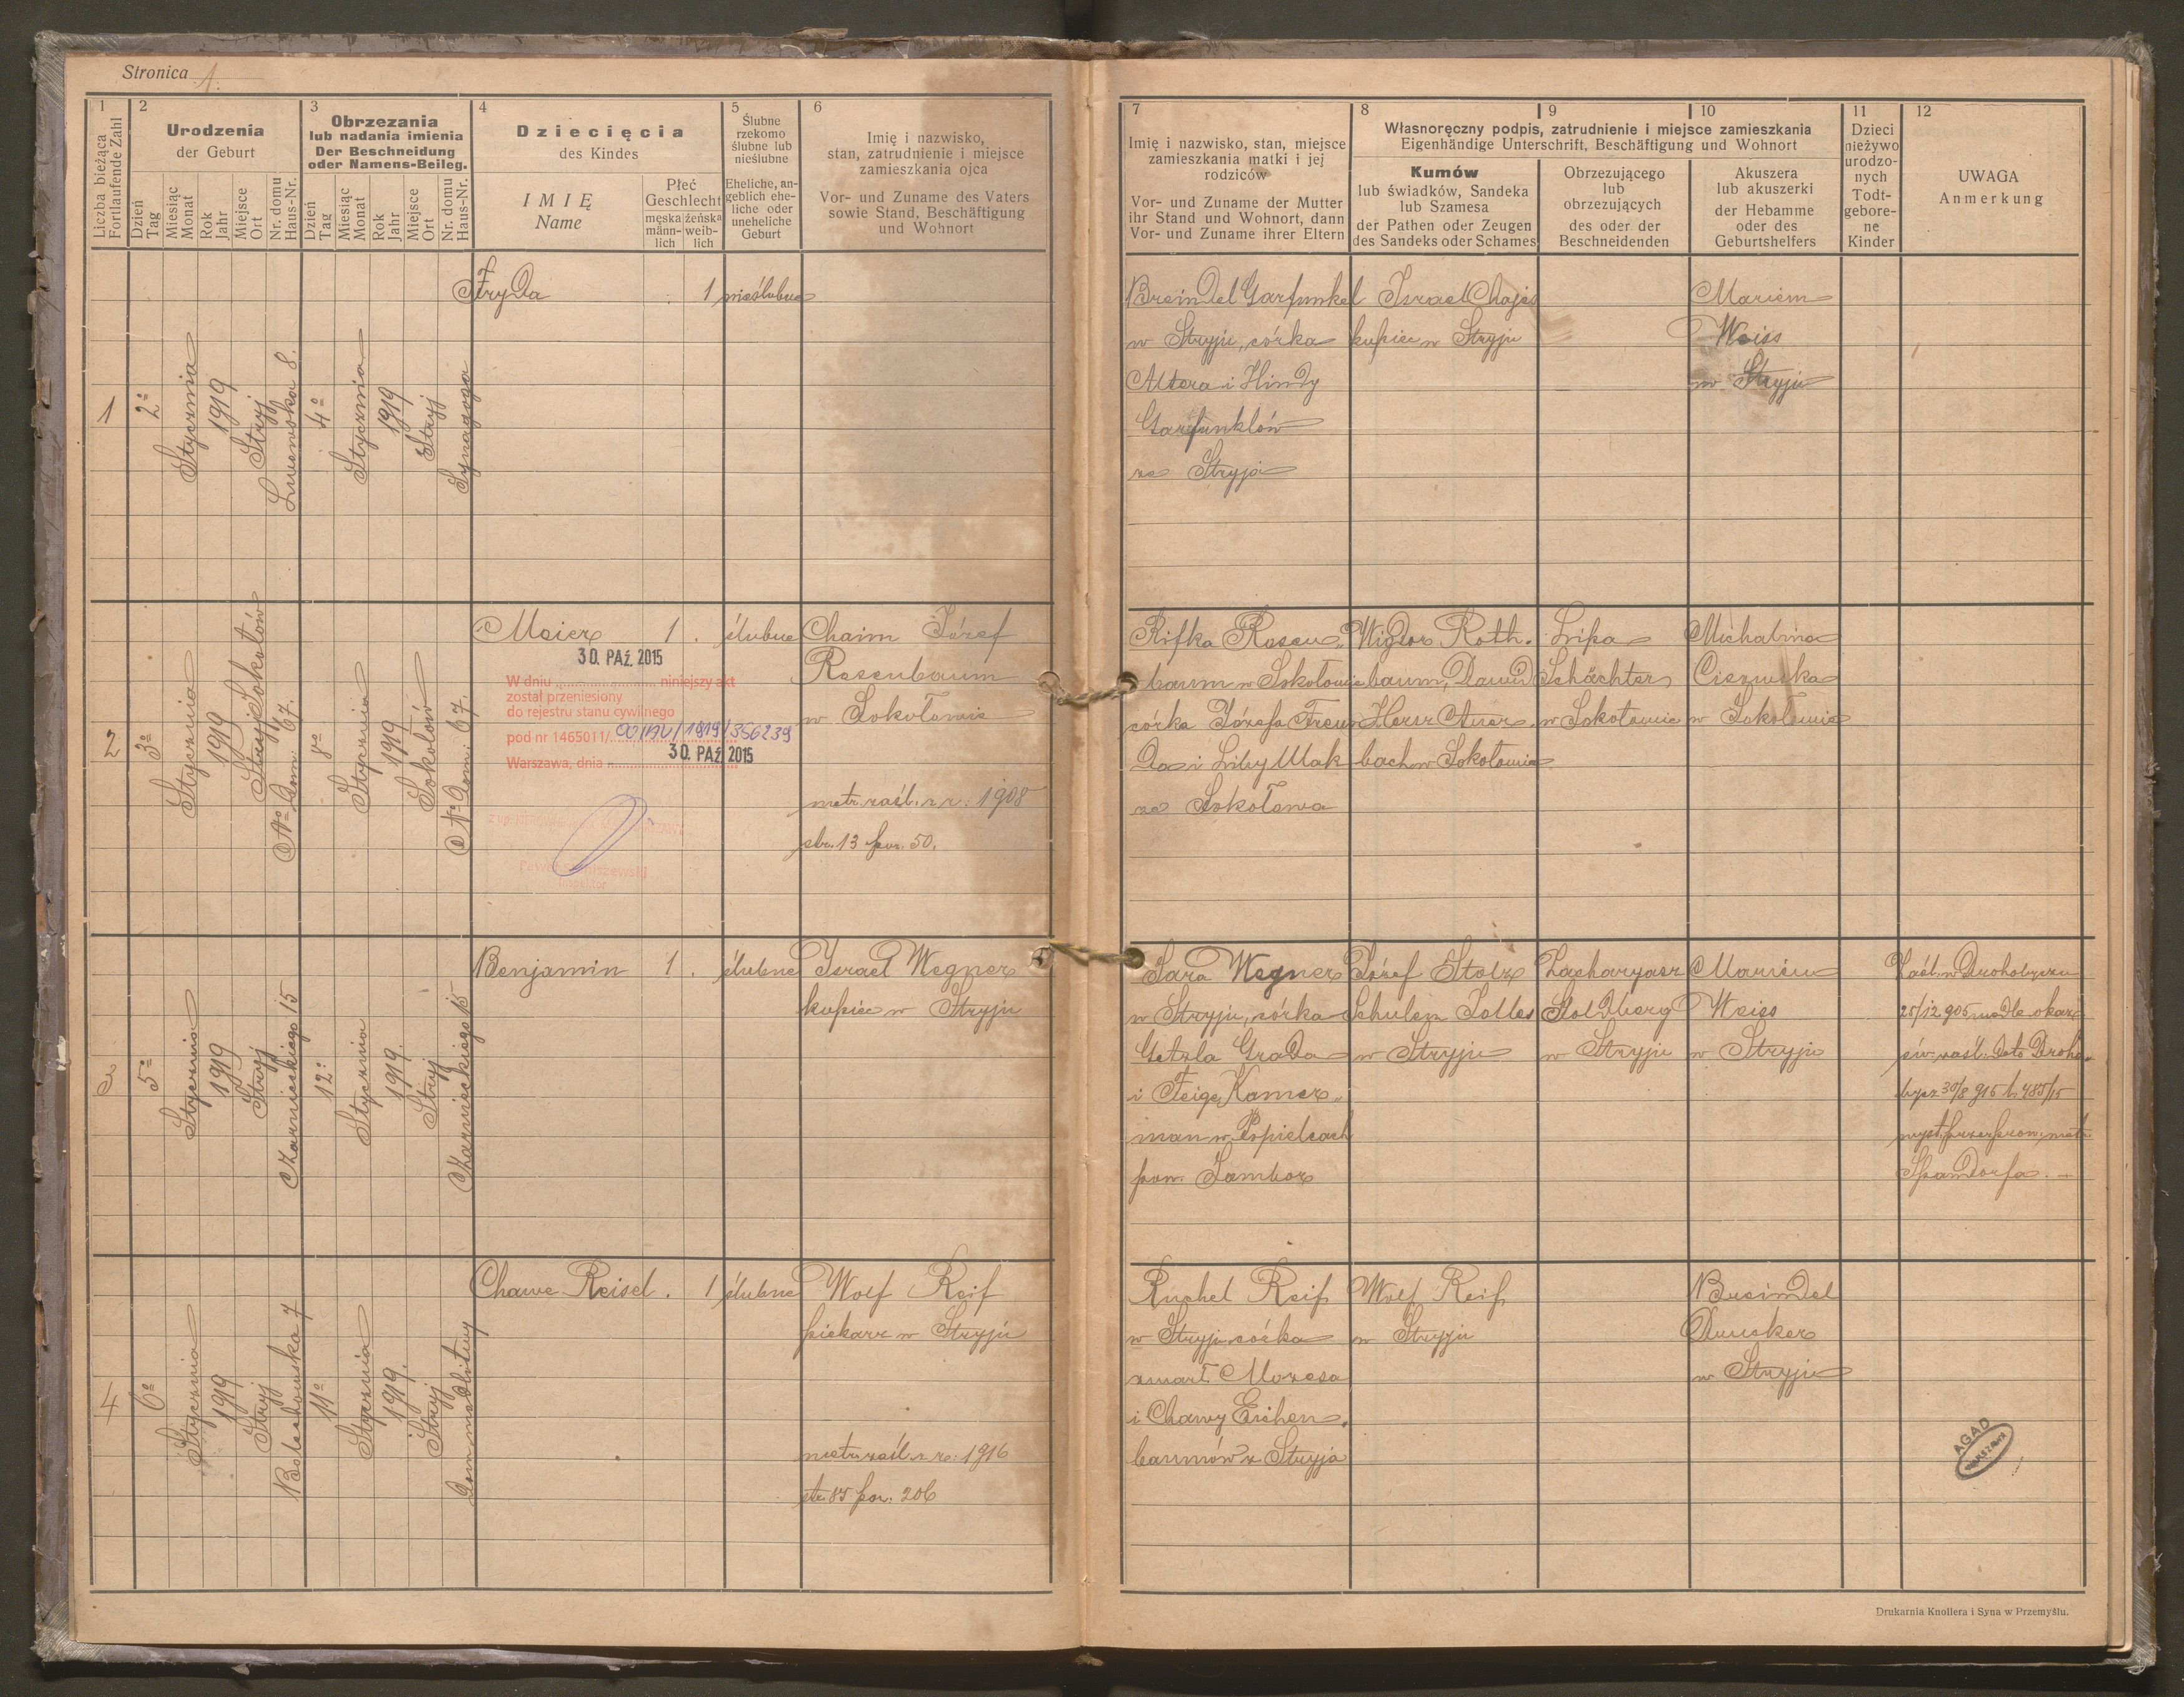 Stronica 1.
1
2
Urodzenia
der Geburt
3
Obrzezania
lub nadania imienia
Der Beschneidung
oder Namens-Beileg.
4
Dziecięcia
des Kindes
5
Ślubne
rzekomo
ślubne lub
nieślubne
Eheliche, an-
geblich ehe-
liche oder
uneheliche
Geburt
6
Imię i nazwisko,
stan, zatrudnienie i miejsce
zamieszkania ojca
Vor- und Zuname des Vaters
sowie Stand, Beschäftigung
und Wohnort
Liczba bieżąca
Fortlaufende Zahl
Dzień
Tag
Miesiąc
Monat
Rok
Jahr
Miejsce
Ort
Nr. domu
Haus-Nr.
Dzień
Tag
Miesiąc
Monat
Rok
Jahr
Miejsce
Ort
Nr. domu
Haus-Nr.
IMIĘ
Name
Płeć
Geschlecht
męska
männ-
lich
żeńska
weib-
lich
7
Imię i nazwisko, stan, miejsce
zamieszkania matki i jej
rodziców
Vor- und Zuname der Mutter
ihr Stand und Wohnort, dann
Vor- und Zuname ihrer Eltern
8
9
10
Własnoręczny podpis, zatrudnienie i miejsce zamieszkania
Eigenhändige Unterschrift, Beschäftigung und Wohnort
Kumów
lub świadków, Sandeka
lub Szamesa
der Pathen oder Zeugen
des Sandeks oder Schames
Obrzezującego
lub
obrzezujących
des oder der
Beschneidenden
Akuszera
lub akuszerki
der Hebamme
oder des
Geburtshelfers
11
Dzieci
nieżywo
urodzo-
nych
Todt-
gebore-
ne
Kinder
12
UWAGA
Anmerkung
1
2º
Stycznia
1919
Stryj
Lwowska 8.
4º
Stycznia
1919
Stryj
Synagoga
Fryda
1
nieślubne
Breindel Garfunkel
w Stryju, córka
Altera i Hindy
Garfunklów
ze Stryja
Israel Chajes
kupiec w Stryju
Mariem
Weiss
w Stryju
2
3º
Stycznia
1919
Stryj Sokołów
Nº Dom. 67.
Stycznia
1919
Sokołów
Nº Dom. 67.
Meier
1 .
ślubne
30. PAŹ. 2015
W dniu niniejszy akt
został przeniesiony
do rejestru stanu cywilnego
pod nr 1465011/00/AU/1919/356239
30. PAŹ 2015
Warszawa, dnia
Chaim Józef
Rosenbaum
w Sokołowie
metr. zaśl. z r. 1908
str. 13 poz. 50.
Rifka Rosen-
baum w Sokołowie
córka Józefa Freun
da i Liby Mak
ze Sokołowa
Wigdor Roth.
baum, Dawid
Hersr Auer
bach w Sokołowie
Lipa
Schächter
w Sokołowie
Michalina
Ciszewska
w Sokołowie
3
5º
Stycznia
1919
Stryj
Czarnieckiego 15
12º
Stycznia
1919.
Stryj
Czarnieckiego 15
Benjamin
1 .
ślubne
Israel Wegner
kupiec w Stryju
Sara Wegner
w Stryju, córka
Getzla Grada
i Feige Kamer-
man w Popielcach
pow. Sambor
Józef Stolz
Schulem Tolles
w Stryju
Zacharyasz
Goldberg
w Stryju
Mariem
Weiss
w Stryju
Zaśl. w Drohobyczu
25/12 905 wedle okaz.
św. zaśl. dato Droho-
bycz 30/8 915 l. 485/15
wyst. przez prow. metr.
Spandorfa. —
4
6º
Stycznia
1919
Stryj
Bolechowska 7
11º
Stycznia
1919.
Stryj
Dom modlitwy
Chawe Reisel
. 1
ślubne
Wolf Reif
piekarz w Stryju
metr. zaśl. z r. 1916
str. 85 poz. 206
Ruchel Reif
w Stryju córka
zmarł. Mozesa
i Chawy Eichen.
baumów z Stryja
Wolf Reif
w Stryju
Breindel
w Stryju
AGAD
WARSZAWA
Drukarnia Knollera i Syna w Przemyślu.